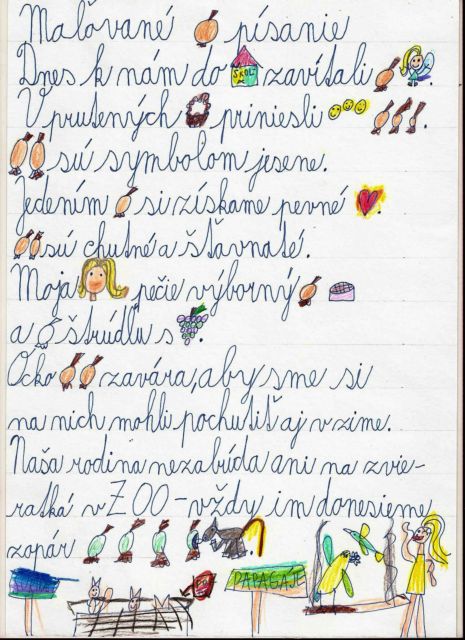 Maľované písanie
Dnes k nám do ŠKOLY zavítali
V prútených priniesli
sú symbolom jesene.
Jedením si získame pevné
sú chutné a šťavnaté.
Moja pečie výborný
a štrúdľu s
Ocko zavára, aby sme si
na nich mohli pochutiť aj v zime.
Naša rodina nezabúda ani na zvie-
ratká v ZOO - vždy im donesieme
zopár
PAPAGÁJE